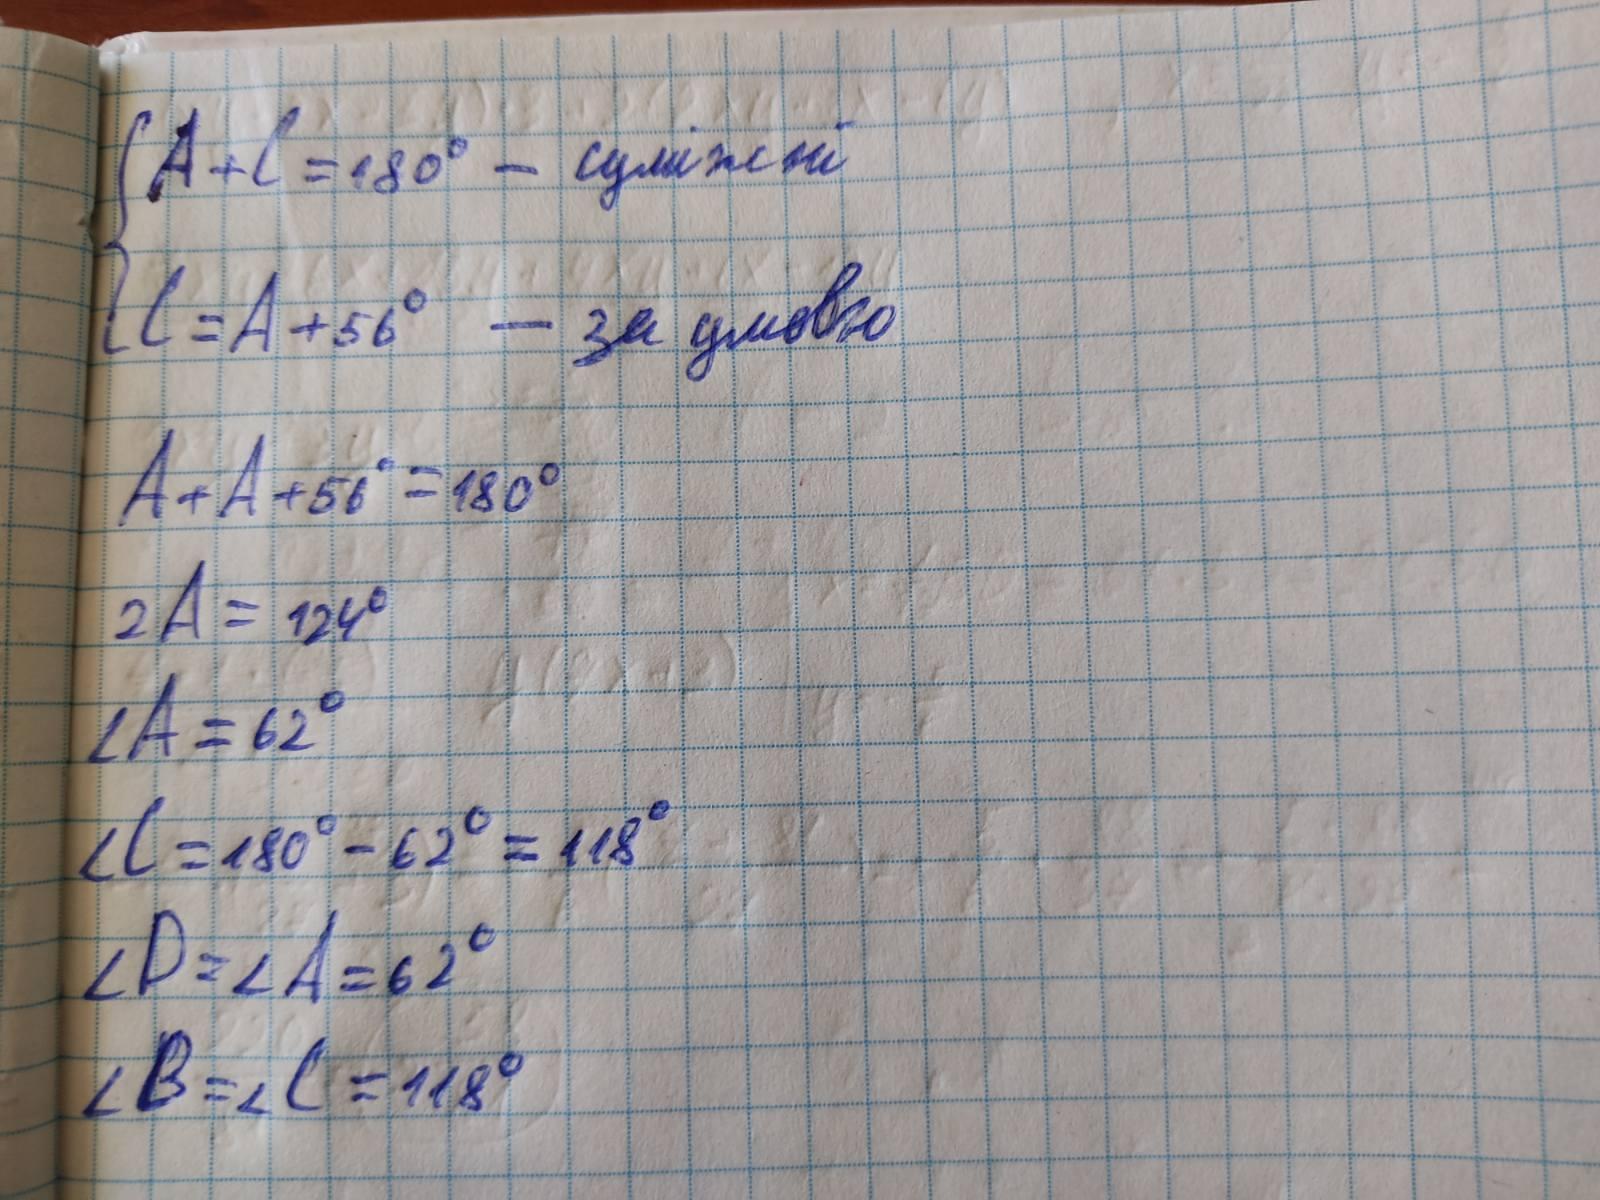 A+C=180° – суміжні
C=A+56° – за умовою
A+A+56°=180°
2A=124°
∠A=62°
∠C=180°-62°=118°
∠D=∠A=62°
∠B=∠C=118°